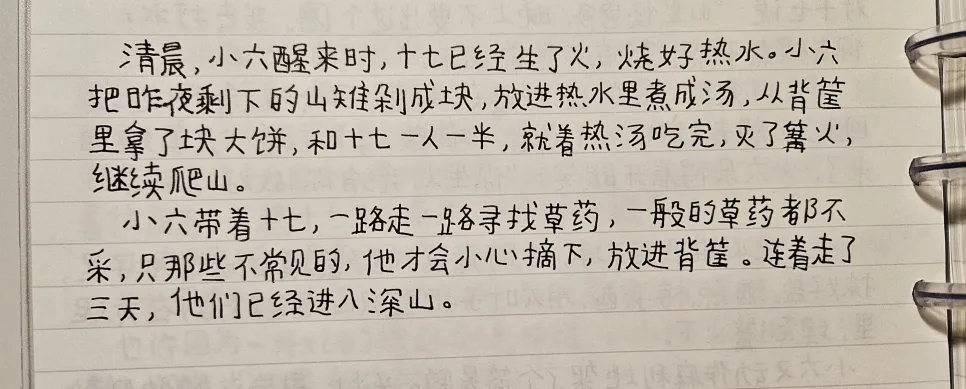 清晨,小六醒来时,十七已经生了火,烧好热水。小六
把昨夜剩下的山雉剁成块,放进热水里煮成汤,从背筐
里拿了块大饼,和十七一人一半,就着热汤吃完,灭了篝火,
继续爬山。
小六带着十七,一路走一路寻找草药,一般的草药都不
采,只那些不常见的,他才会小心摘下,放进背筐。连着走了
三天,他们已经进入深山。